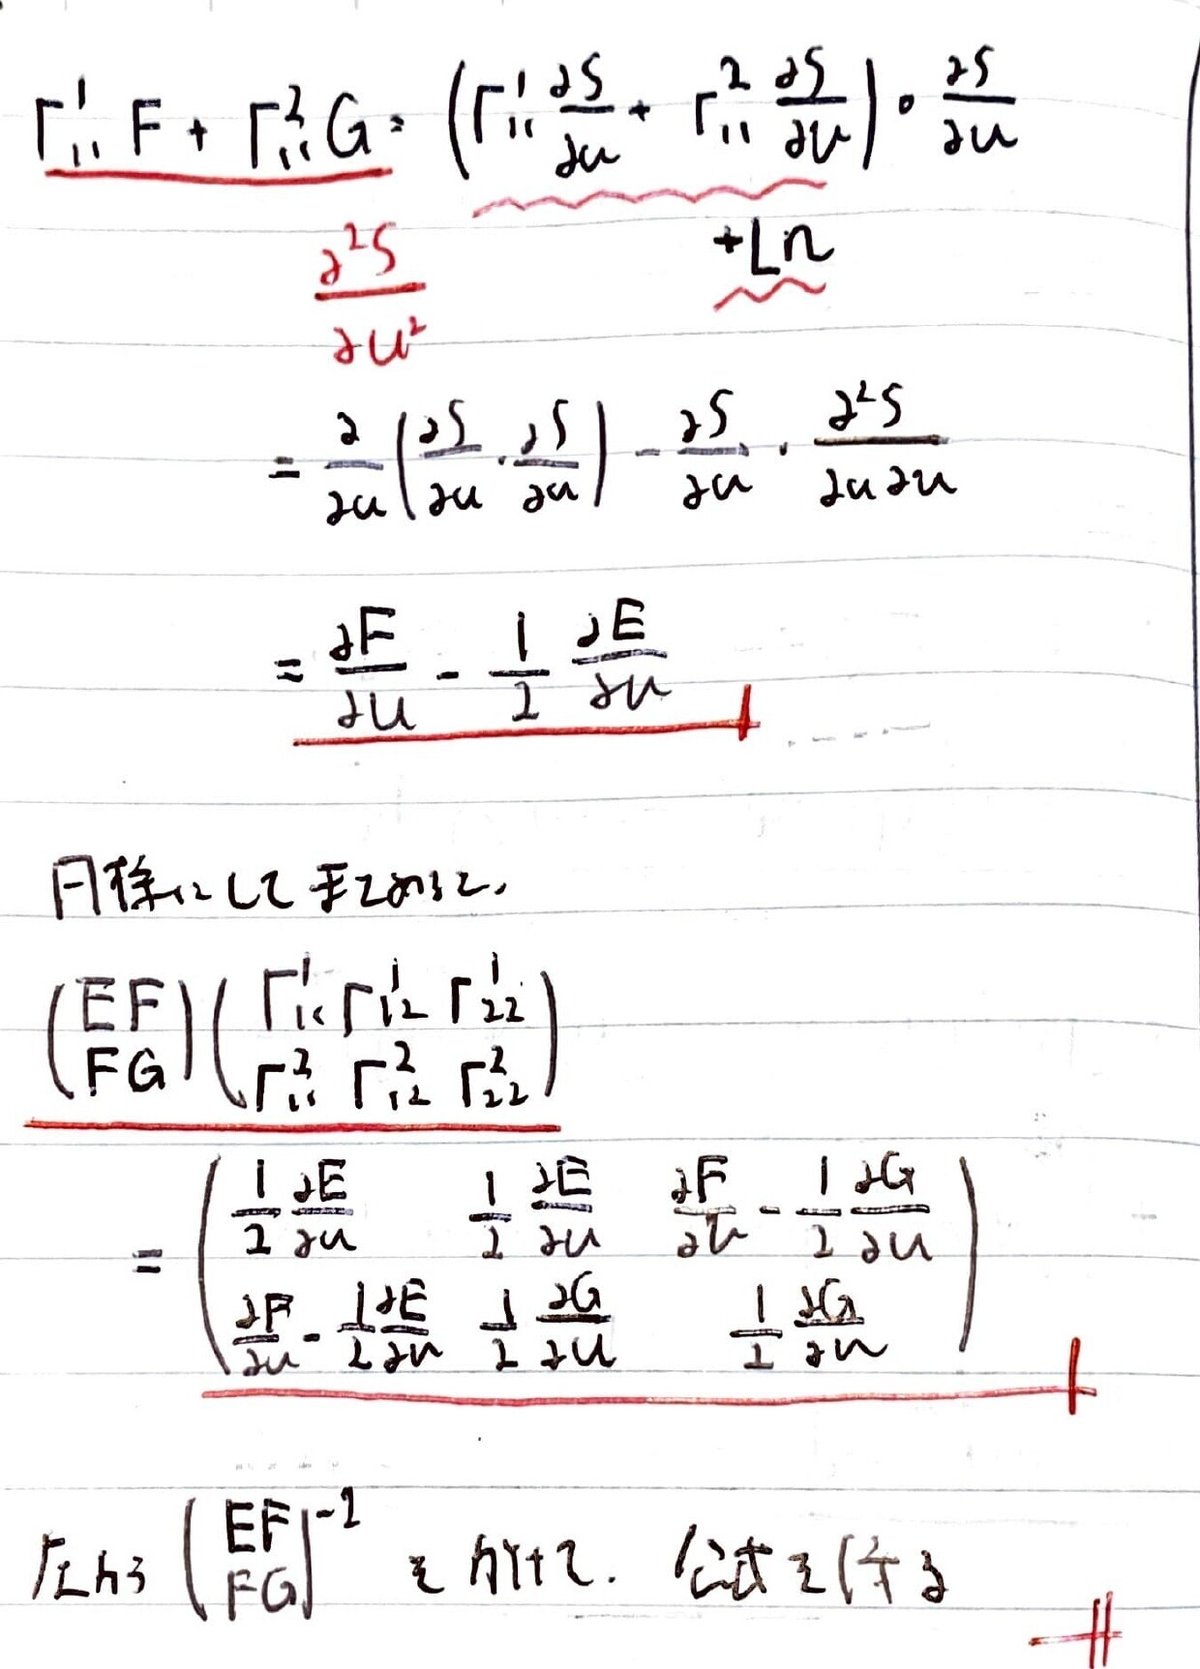 Γ¹₁₁ F + Γ²₁₁ G = (Γ¹₁₁ ∂S/∂u + Γ²₁₁ ∂S/∂v) · ∂S/∂u
+Ln
∂²S/∂u²
= ∂/∂u (∂S/∂u · ∂S/∂u) - ∂S/∂u · ∂²S/∂u∂u
= ∂F/∂u - 1/2 ∂E/∂u
同様にしてまとめると、
(E F / F G) (Γ¹₁₁ Γ¹₁₂ Γ¹₂₂ / Γ²₁₁ Γ²₁₂ Γ²₂₂)
= (1/2 ∂E/∂u 1/2 ∂E/∂u ∂F/∂v - 1/2 ∂G/∂u
∂F/∂u - 1/2 ∂E/∂u 1/2 ∂G/∂u 1/2 ∂G/∂u)
左から (E F / F G)⁻¹ を掛けて. 公式を得る